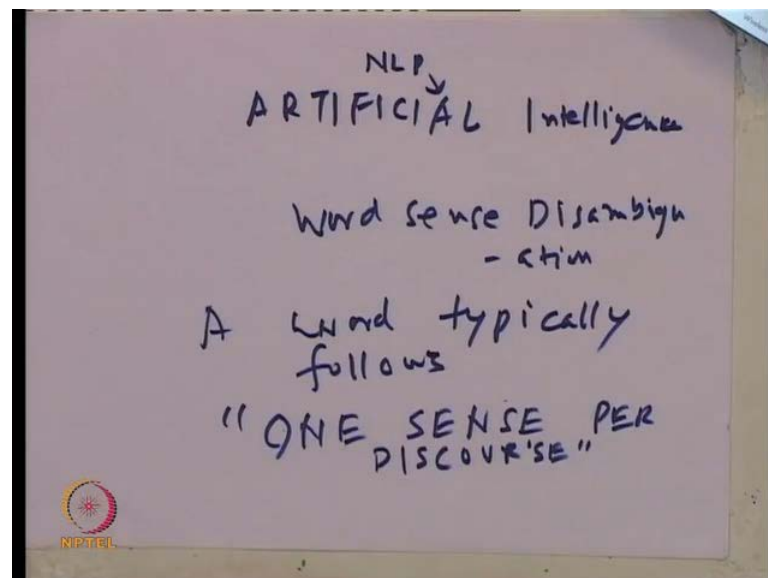 NLP
ARTIFICIAL Intelligence
Word sense Disambigu
- ation
A word typically
follows
"ONE SENSE PER
DISCOURSE"
NPTEL